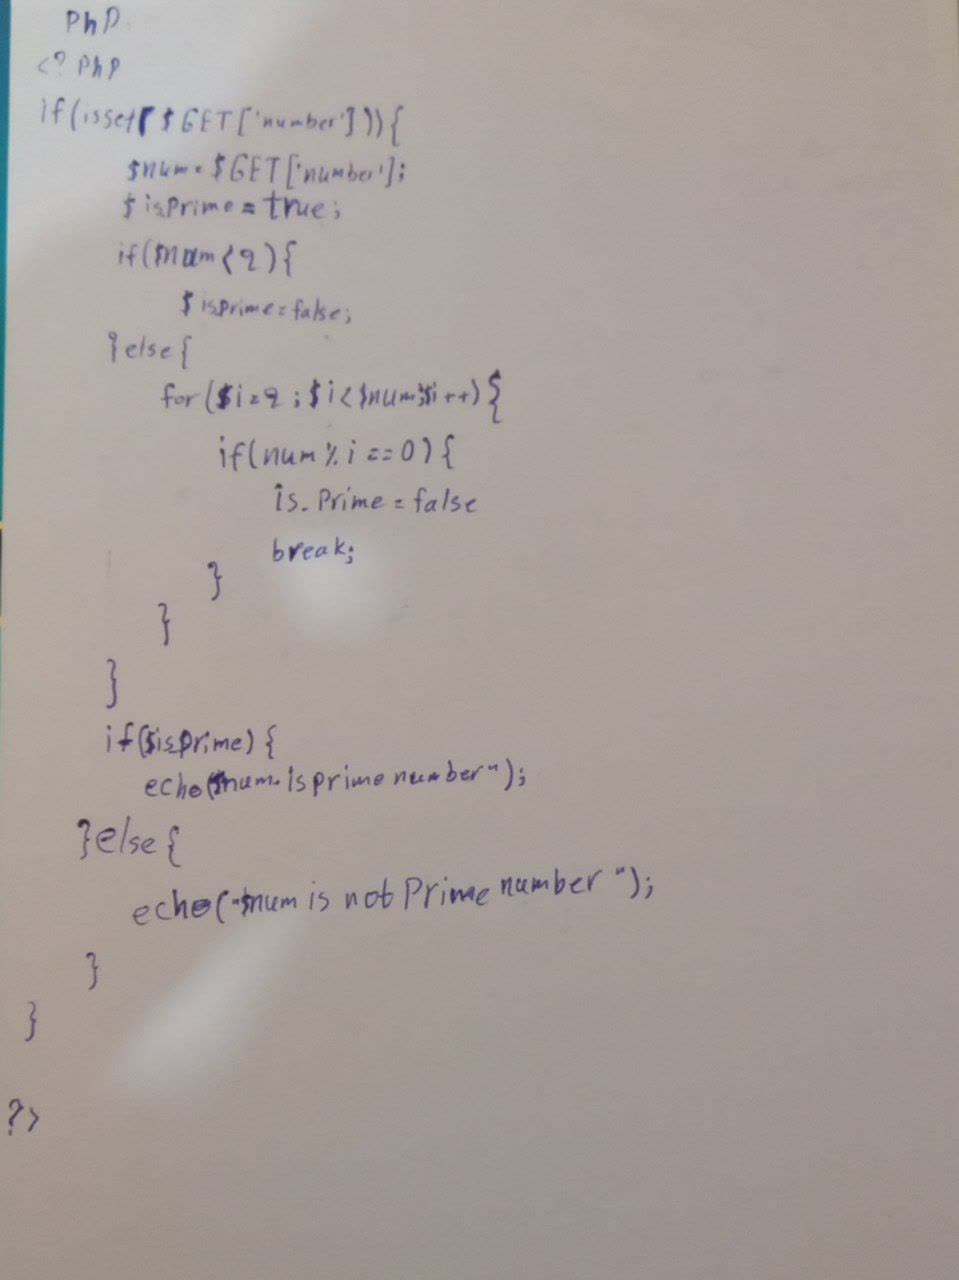 PhP
<? PhP
if(isset($GET['number'])){
$num=$GET['number'];
$isPrime=true;
if($num<2){
$isprime=false;
}else{
for($i=2;$i<$num;$i++){
if(num%i==0){
is_Prime=false
break;
}
}
}
if($isprime){
echo("$num is prime number");
}else{
echo("$num is not Prime number");
}
}
?>